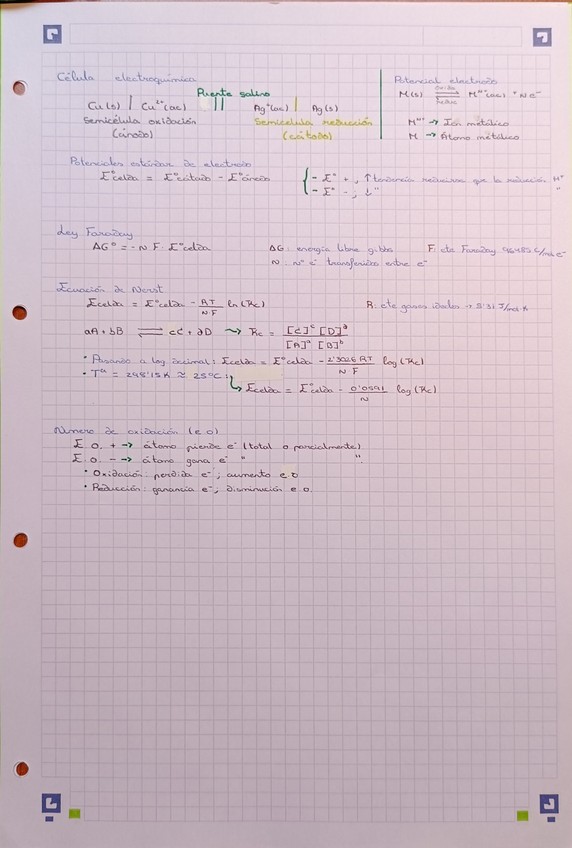 Célula electroquímica
Puente salino
Cu(s) | Cu²⁺(ac) || Ag⁺(ac) | Ag(s)
Semicélula oxidación Semicélula reducción
(ánodo) (cátodo)
Potencial electrodo
M(s) ⇌ Mⁿ⁺(ac) + Ne⁻
Mⁿ⁺ → Ion metálico
M → Átomo metálico
Potenciales estándar de electrodo
E°celda = E°cátodo - E°ánodo
- E° +, ↑ tendencia reducirse que la reducción H⁺
- E° -; ↓ "
Ley Faraday
ΔG° = -N·F·E°celda
ΔG: energía libre gibbs F: cte Faraday 96485 C/mol e⁻
N: nº e⁻ transferidos entre e⁻
Ecuación de Nerst
Ecelda = E°celda - RT/N·F ln(Rc)
R: cte gases ideales → 8'31 J/mol·K
aA + bB ⇌ cC + dD → Rc = [C]ᶜ [D]ᵈ / [A]ᵃ [B]ᵇ
• Pasando a log decimal: Ecelda = E°celda - 2'3026 RT/N F log(Rc)
• Tª = 298'15K ≈ 25ºC:
Ecelda = E°celda - 0'0591/N log(Rc)
Número de oxidación (e.o)
E.O. + → átomo pierde e⁻ (total o parcialmente)
E.O. - → átomo gana e⁻ " "
• Oxidación: perdida e⁻; aumento e.o
• Reducción: ganancia e⁻; disminución e.o.